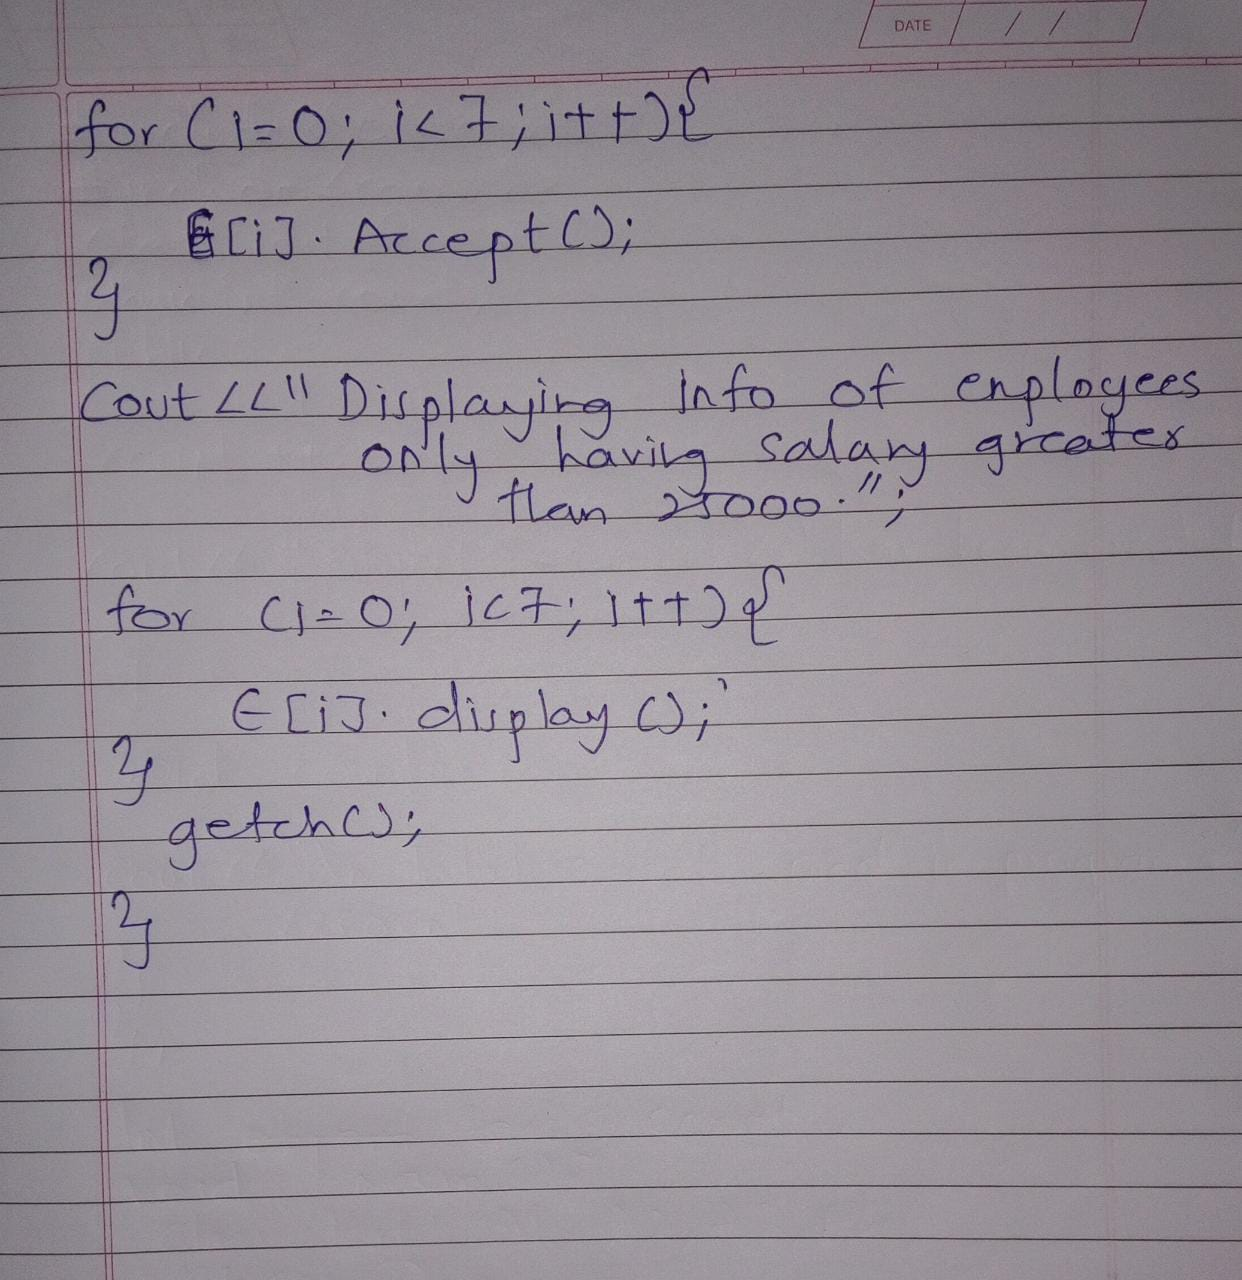 DATE / /
for (i=0; i<7; i++){
E[i]. Accept();
}
Cout <<" Displaying info of enployees
only having salary greater
than 25000.";
for (i=0; i<7; i++){
E[i]. display();
}
getch();
}